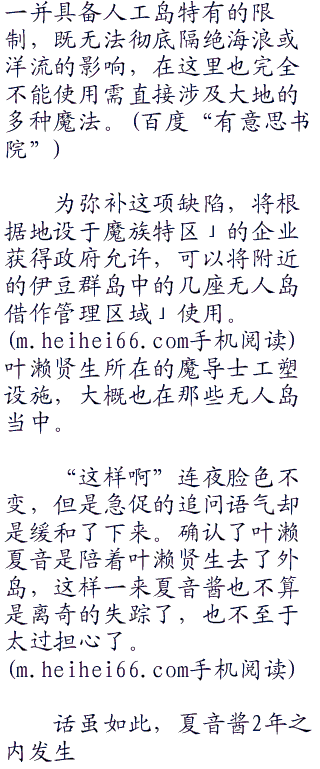 一并具备人工岛特有的限
制，既无法彻底隔绝海浪或
洋流的影响，在这里也完全
不能使用需直接涉及大地的
多种魔法。(百度“有意思书
院”)
为弥补这项缺陷，将根
据地设于魔族特区」的企业
获得政府允许，可以将附近
的伊豆群岛中的几座无人岛
借作管理区域」使用。
(m.heihei66.com手机阅读)
叶濑贤生所在的魔导士工塑
设施，大概也在那些无人岛
当中。
“这样啊”连夜脸色不
变，但是急促的追问语气却
是缓和了下来。确认了叶濑
夏音是陪着叶濑贤生去了外
岛，这样一来夏音酱也不算
是离奇的失踪了，也不至于
太过担心了。
(m.heihei66.com手机阅读)
话虽如此，夏音酱2年之
内发生